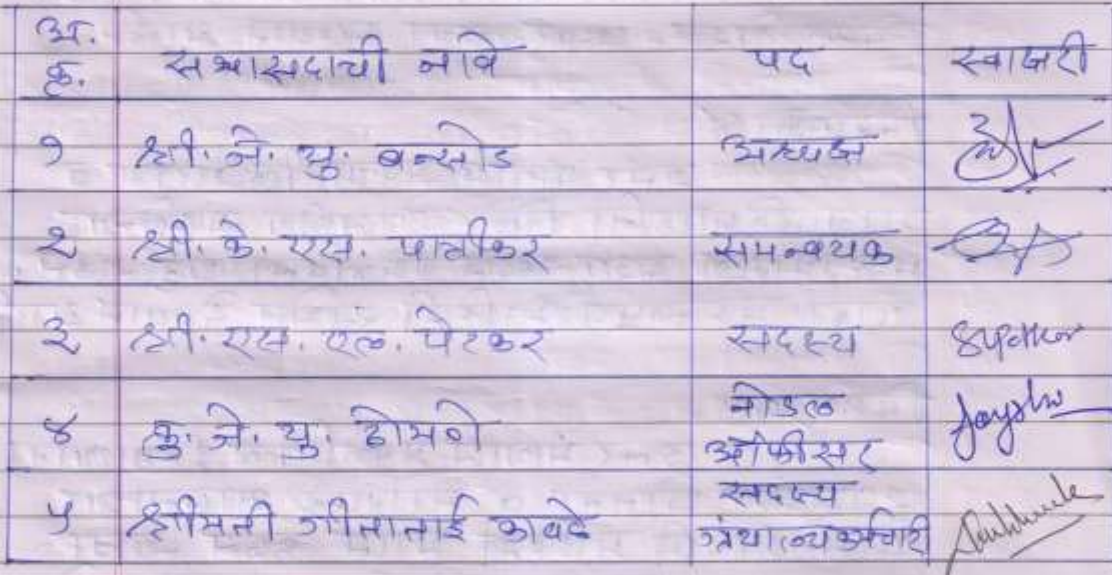 अ.
क्र. सभासदाची नावे पद स्वाक्षरी
१ श्री. जे. यु. बन्सोड अध्यक्ष
२ श्री. के. एस. पात्रीकर समन्वयक
३ श्री. एस. एल. पेटकर सदस्य
४ कु. जे. यु. ढोमणे नोडल
ऑफीसर
५ श्रीमती गीताताई कावडे सदस्य
ग्रंथालय कर्मचारी